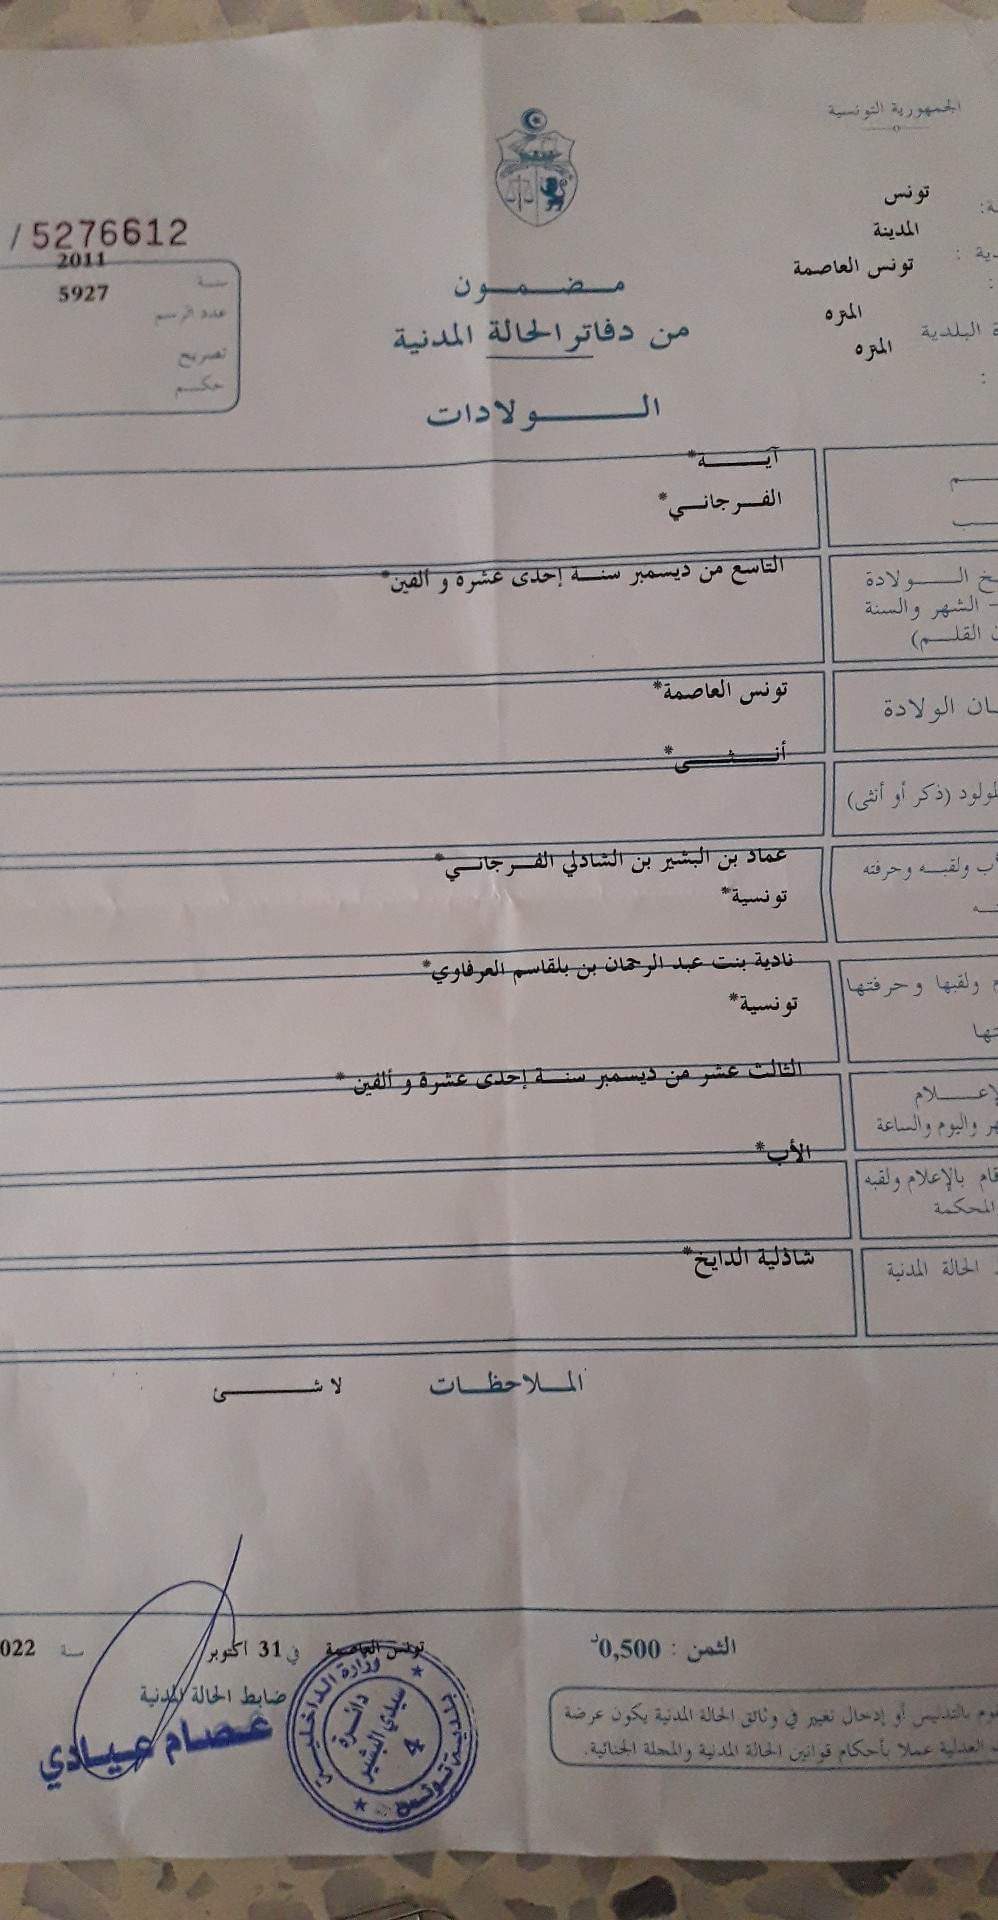 الجمهورية التونسية
تونس
المدينة
تونس العاصمة
المنزه
البلدية
المنزه
/ 5276612
سنة 2011
عدد الرسم 5927
تصريح
حكم
مضمون
من دفاتر الحالة المدنية
الولادات
آية*
الفرجاني*
التاسع من ديسمبر سنة إحدى عشرة و ألفين*
الولادة
الشهر والسنة
القلم)
تونس العاصمة*
الولادة
أنثى*
(ذكر أو أنثى)
عماد بن البشير بن الشاذلي الفرجاني*
ولقبه وحرفته
تونسية*
نادية بنت عبد الرحمان بن بلقاسم العرفاوي*
ولقبها وحرفتها
تونسية*
الثالث عشر من ديسمبر سنة إحدى عشرة و ألفين *
واليوم والساعة
الأب*
بالإعلام ولقبه
المحكمة
شاذلية الدايخ*
الحالة المدنية
الملاحظات لا شئ
الثمن : 0,500د
تونس العاصمة في 31 أكتوبر سنة 022
ضابط الحالة المدنية
عصام عيادي
وزارة الداخلية
دائرة
سيدي البشير
4
بلدية تونس
بالتدليس أو إدخال تغيير في وثائق الحالة المدنية يكون عرضة
العدلية عملا بأحكام قوانين الحالة المدنية والمجلة الجنائية.